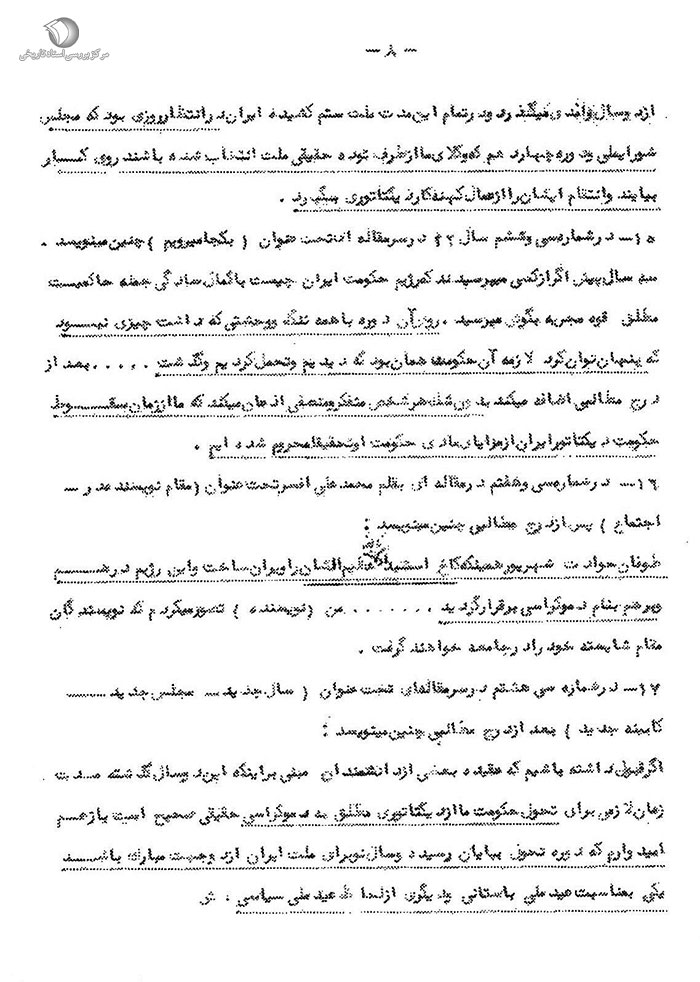 مرکز بررسی اسناد تاریخی
— ۸ —
از دو سال و اندی میگذرد و در تمام این مدت ملت ستم کشیده ایران در انتظار روزی بود که مجلس
شورایملی دوره چهارده هم که وکلای ما از طرف توده حقیقی ملت انتخاب شده باشند روی کار
بیایند و انتقام ایشان را از عمال کهنه کار دیکتاتوری بگیرد .
۱۵ـ در شماره سی و ششم سال ۲۲ در سرمقاله اش تحت عنوان ( بکجا میرویم ) چنین مینویسد .
سه سال پیش اگر از کسی میپرسیدند که رژیم حکومت ایران چیست با کمال سادگی جمله حاکمیت
مطلق قوه مجریه بگوش میرسید . روی آن دوره با همه ننگ و وحشتی که داشت چیزی نبود
که پنهان توان کرد لازمه آن حکومت همان بود که دیدیم و تحمل کردیم و گذشت ..... بعد از
درج مطالبی اضافه میکند بدون شک هر شخص متفکر و منصفی اذعان میکند که ما از زمان سقوط
حکومت دیکتاتور ایران از مزایای مادی حکومت او تحقیقا محروم شده ایم .
۱۶ـ در شماره سی و هفتم در مقاله ای بقلم محمد علی افسر تحت عنوان ( مقام نویسنده در —
اجتماع ) پس از درج مطالبی چنین مینویسد :
طوفان حوادث شهریور همینکه کاخ استبداد عظیم الشان را ویران ساخت و این رژیم درهم
و برهم بنام دموکراسی برقرار گردید ........ من ( نویسنده ) تصور میکردم که نویسندگان
مقام شایسته خود را در جامعه خواهند گرفت .
۱۷ـ در شماره سی هشتم در سرمقاله ای تحت عنوان ( سال جدید — مجلس جدید —
کابینه جدید ) بعد از درج مطالبی چنین مینویسد :
اگر قبول داشته باشیم که عقیده بعضی از دانشمندان مبنی بر اینکه این دو سال گذشته مدت
زمان لازمی برای تحول حکومت ما از دیکتاتوری مطلق به دموکراسی حقیقی صحیح است باز هم
امیدوارم که دوره تحول بپایان رسید و سال نو برای ملت ایران از دو جهت مبارک باشد
یکی بمناسبت عید ملی باستانی و دیگری از لحاظ عید ملی سیاسی .